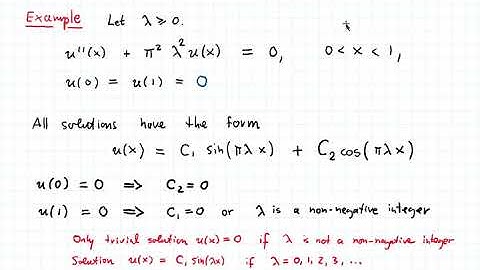 Example Let λ ⩾ 0.
u''(x) + π² λ² u(x) = 0, 0 < x < 1,
u(0) = u(1) = 0
All solutions have the form
u(x) = C₁ sin(πλx) + C₂ cos(πλx)
u(0) = 0 ⟹ C₂ = 0
u(1) = 0 ⟹ C₁ = 0 or λ is a non-negative integer
Only trivial solution u(x) = 0 if λ is not a non-negative integer
Solution u(x) = C₁ sin(λx) if λ = 0, 1, 2, 3, ...